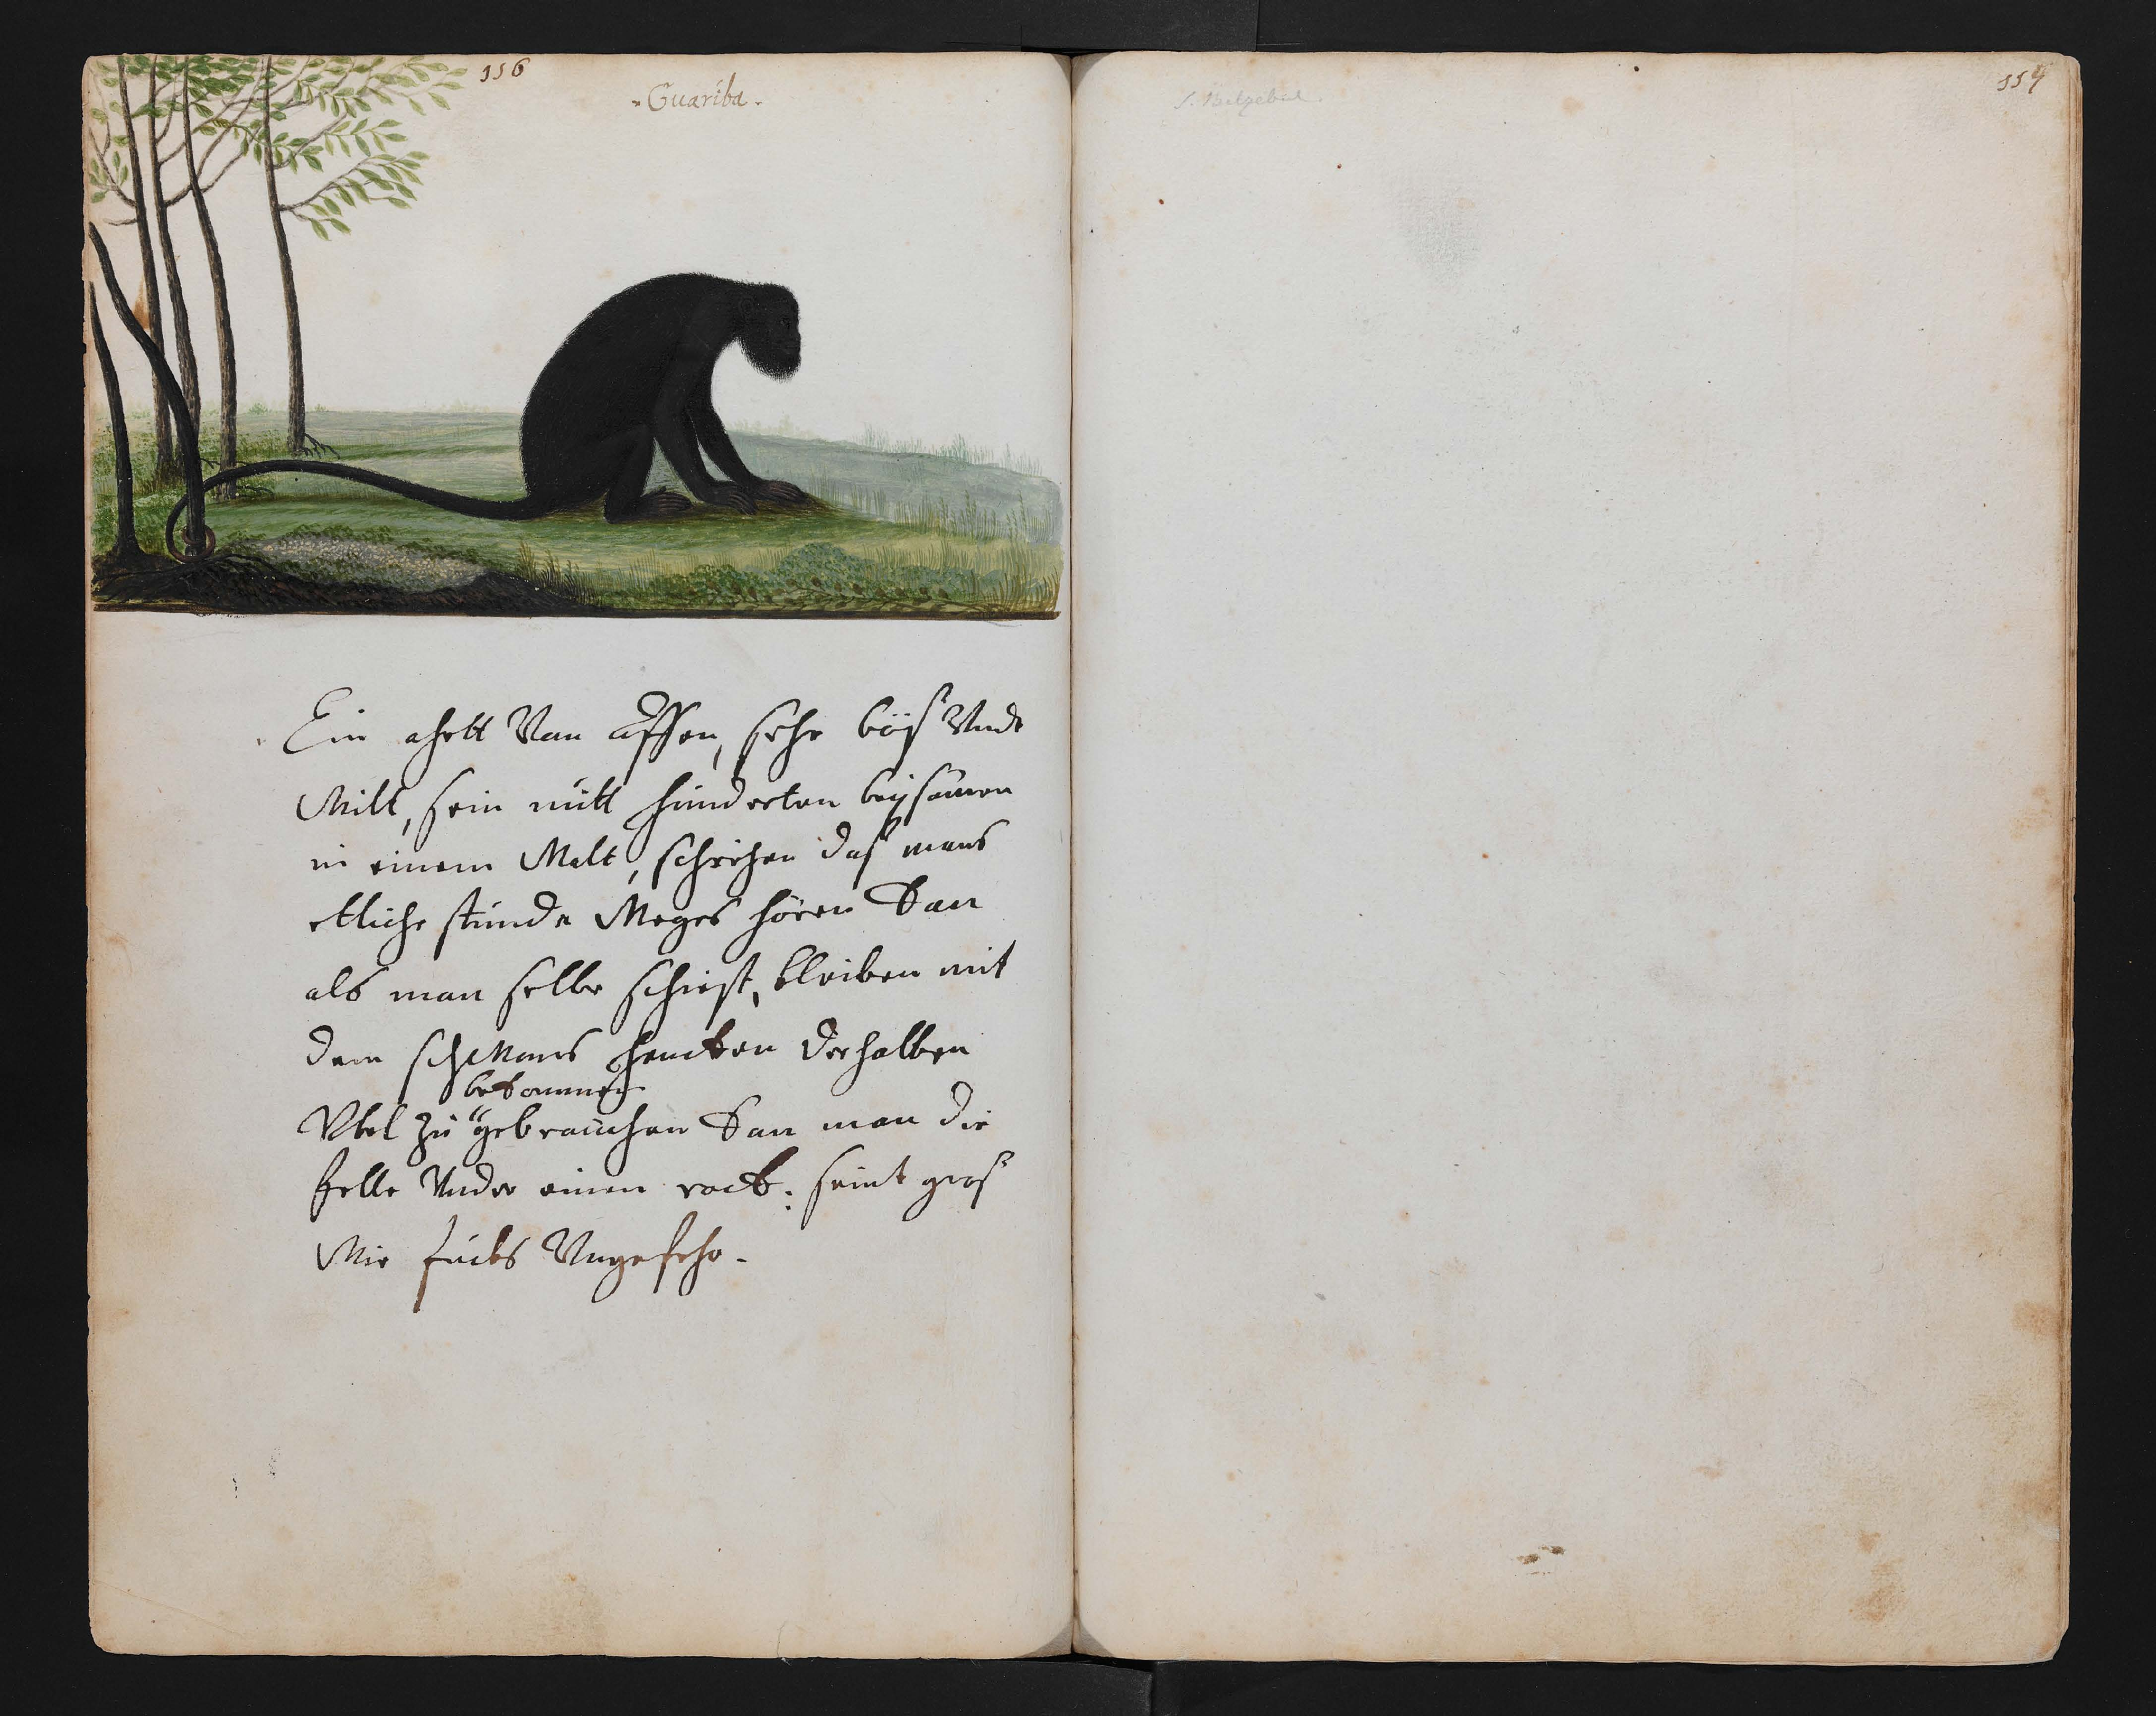 116
Guariba.
Ein ahrtt Van affen, sehr böß Vndt
Wilt, sein mitt hunderten beÿsamen
in einem Walt, schreÿen daß mans
etliche stunde Weges hören kan
als man selbe schiest, bleiben mit
dem schwans hencken derhalben
bekommen
Vbel zu gebrauchen kan man die
felle Vnder einen rock: seint groß
Wie fucks Vngefehr.
S. Belzebul.